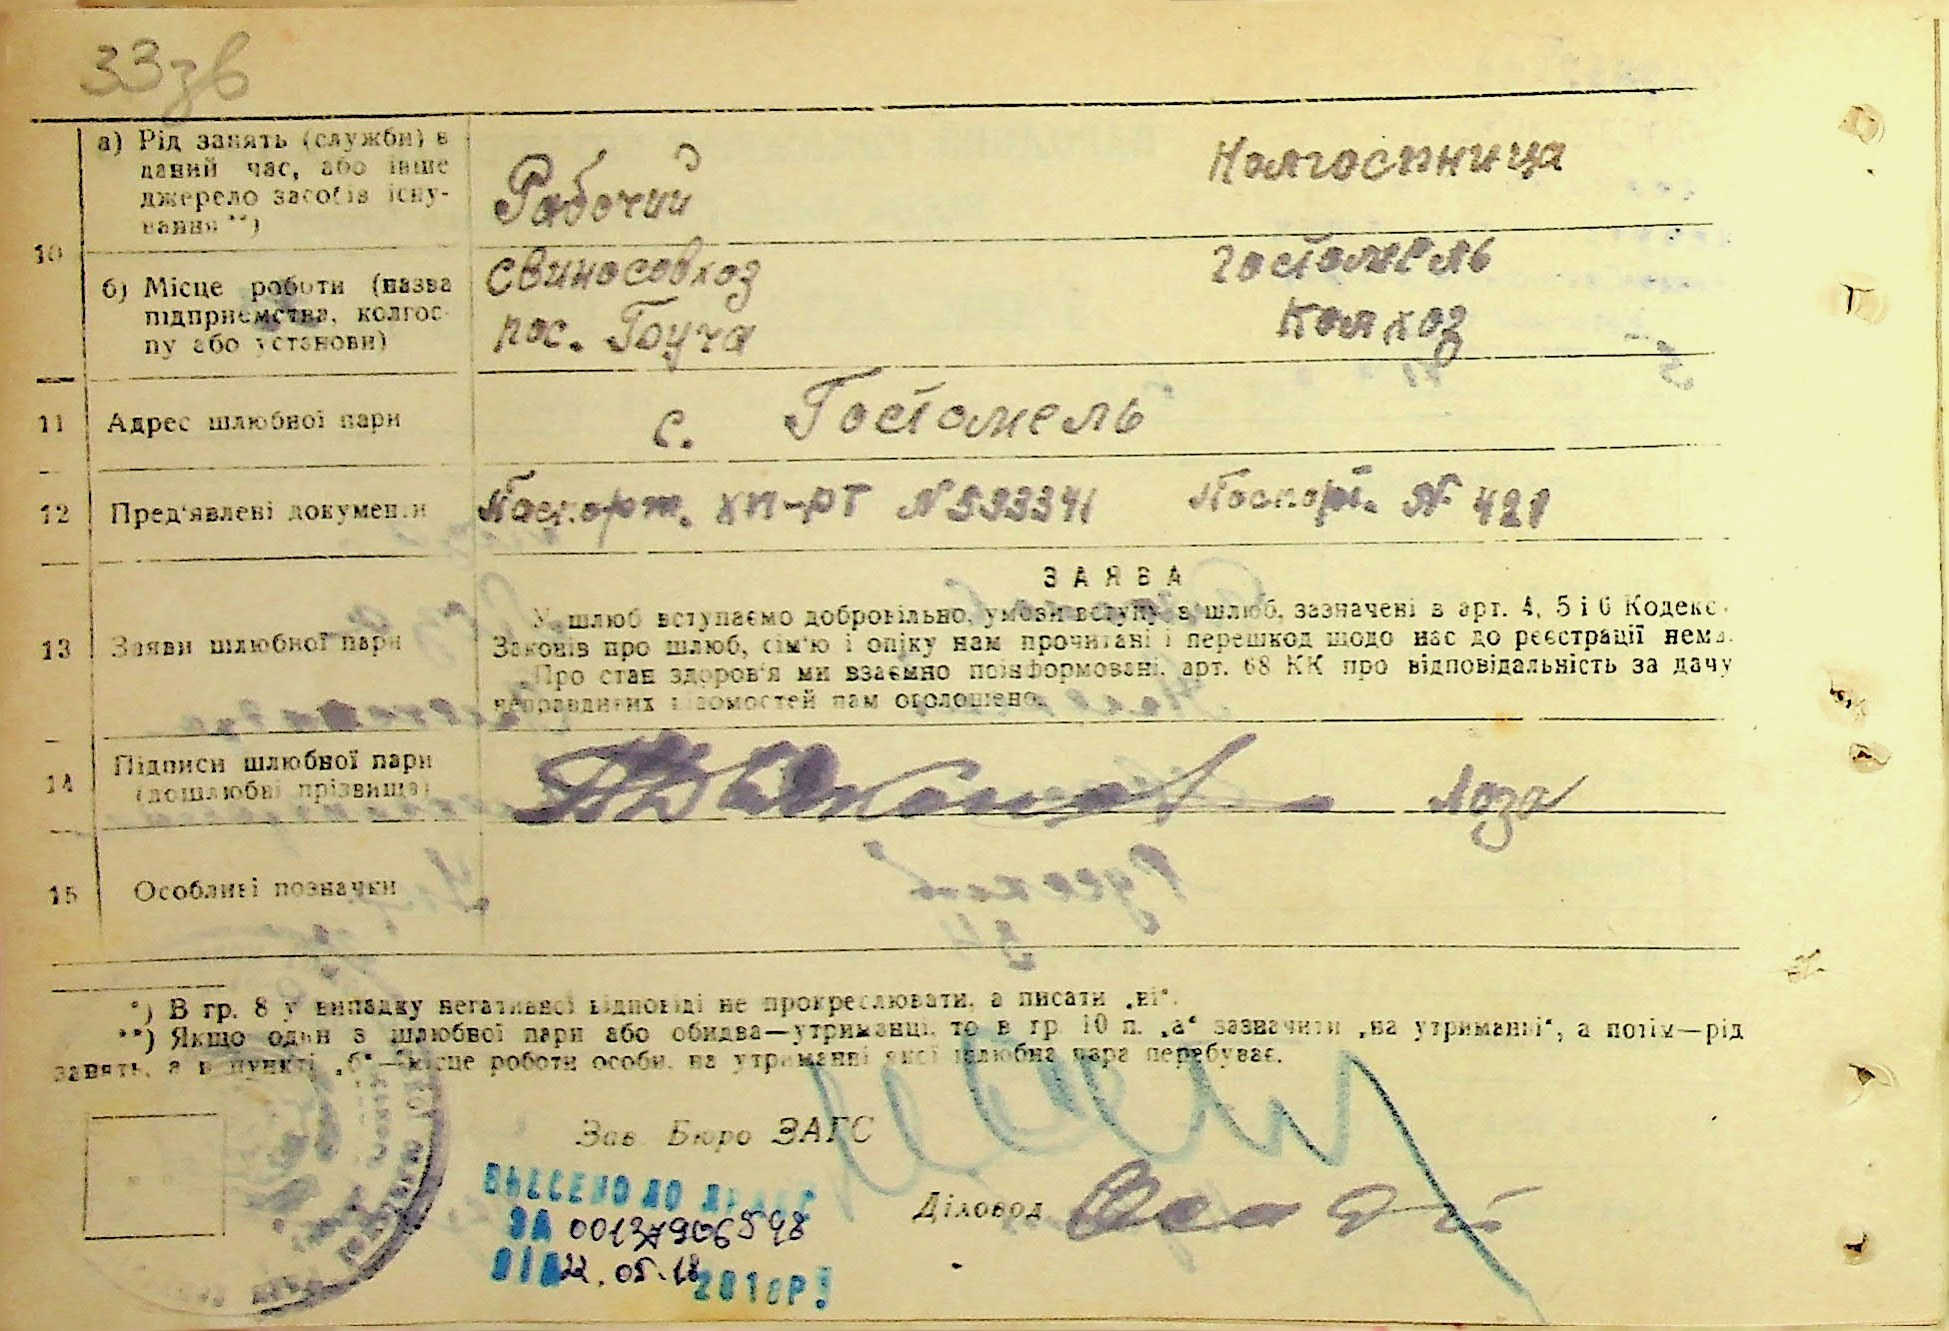 33зв
10
а) Рід занять (служби) в
даний час, або інше
джерело засобів існу-
вання **)
Рабочий
Колгоспница
б) Місце роботи (назва
підприємства, колгос-
пу або установи)
Свиносовхоз
пос. Буча
Гостомель
Колхоз
11
Адрес шлюбної пари
с. Гостомель
12
Пред'явлені документи
Паспорт. № 593341
Паспорт. № 421
13
Заяви шлюбної пари
ЗАЯВА
У шлюб вступаємо добровільно, умови вступу в шлюб, зазначені в арт. 4, 5 і 6 Кодекс
Законів про шлюб, сім'ю і опіку нам прочитані і перешкод щодо нас до реєстрації нема.
Про стан здоров'я ми взаємно поінформовані, арт. 68 КК про відповідальність за дачу
неправдивих відомостей нам оголошено.
14
Підписи шлюбної пари
(дошлюбні прізвища)
Лоза
15
Особливі позначки
*) В гр. 8 у випадку негативної відповіді не прокреслювати, а писати „ні".
**) Якщо один з шлюбної пари або обидва—утриманці, то в гр. 10 п. „а" зазначити „на утриманні", а потім—рід
занять, а в пункті „б"—місце роботи особи, на утриманні якої шлюбна пара перебуває.
Зав. Бюро ЗАГС
Діловод
ВНЕСЕНО ДО
ЗА 00137906598
ВІД 22.05.18 2018Р.